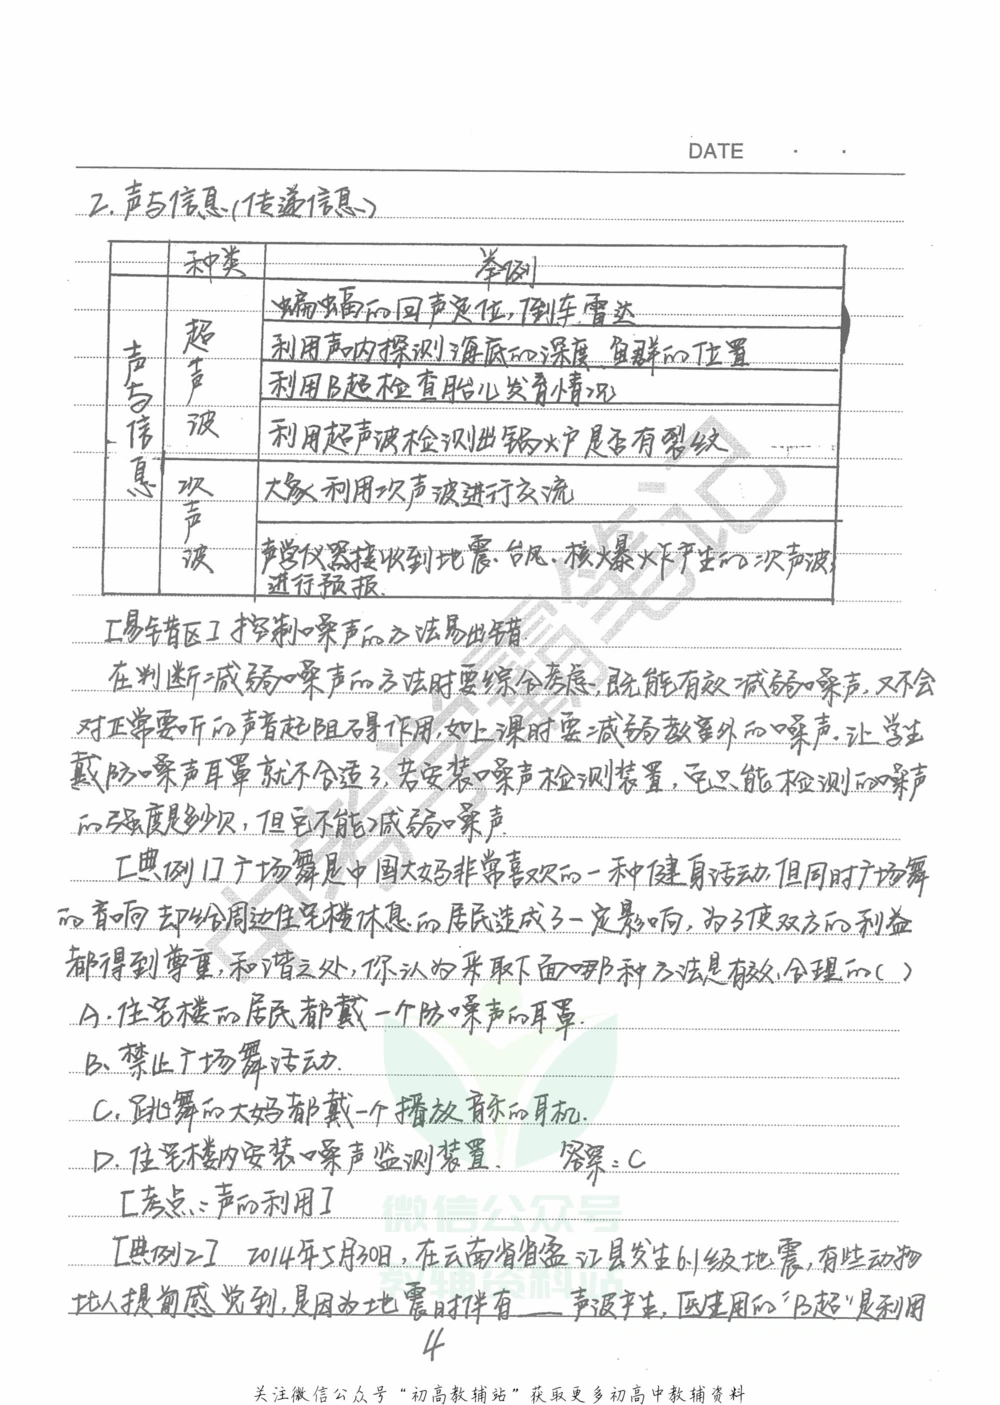 DATE · ·
2.声与信息(传递信息)
种类 举例
声与信息
超声波
蝙蝠的回声定位,倒车雷达
利用声内探测海底的深度、鱼群的位置
利用B超检查胎儿发育情况
利用超声波检测出锅炉是否有裂纹
次声波
大象利用次声波进行交流
声学仪器接收到地震、台风、核火暴火乍产生的二次声波,
进行预报.
[易错区]控制噪声的方法易出错.
在判断减弱噪声的方法时要综合考虑,既能有效减弱噪声,又不会
对正常要听的声音起阻碍作用,如上课时要减弱教室外的噪声.让学生
戴防噪声耳罩就不合适了,若安装噪声检测装置,它只能检测的噪声
的强度是多少贝,但它不能减弱噪声.
[典例1]广场舞是中国大妈非常喜欢的一种健身活动.但同时广场舞
的音响却给周边住宅楼休息的居民造成了一定影响,为了使双方的利益
都得到尊重,和谐之处,你认为采取下面哪种方法是有效、合理的( )
A.住宅楼的居民都戴一个防噪声的耳罩.
B、禁止广场舞活动.
C.跳舞的大妈都戴一个播放音乐的耳机.
D.住宅楼内安装噪声监测装置. 答案:C
[考点二:声的利用]
[典例2] 2014年5月30日,在云南省省盈江县发生6.1级地震,有些动物
比人提前感觉到,是因为地震时伴有___声波产生,医生用的"B超"是利用
4
中考学霸笔记
微信公众号
教辅资料站
关注微信公众号“初高教辅站”获取更多初高中教辅资料